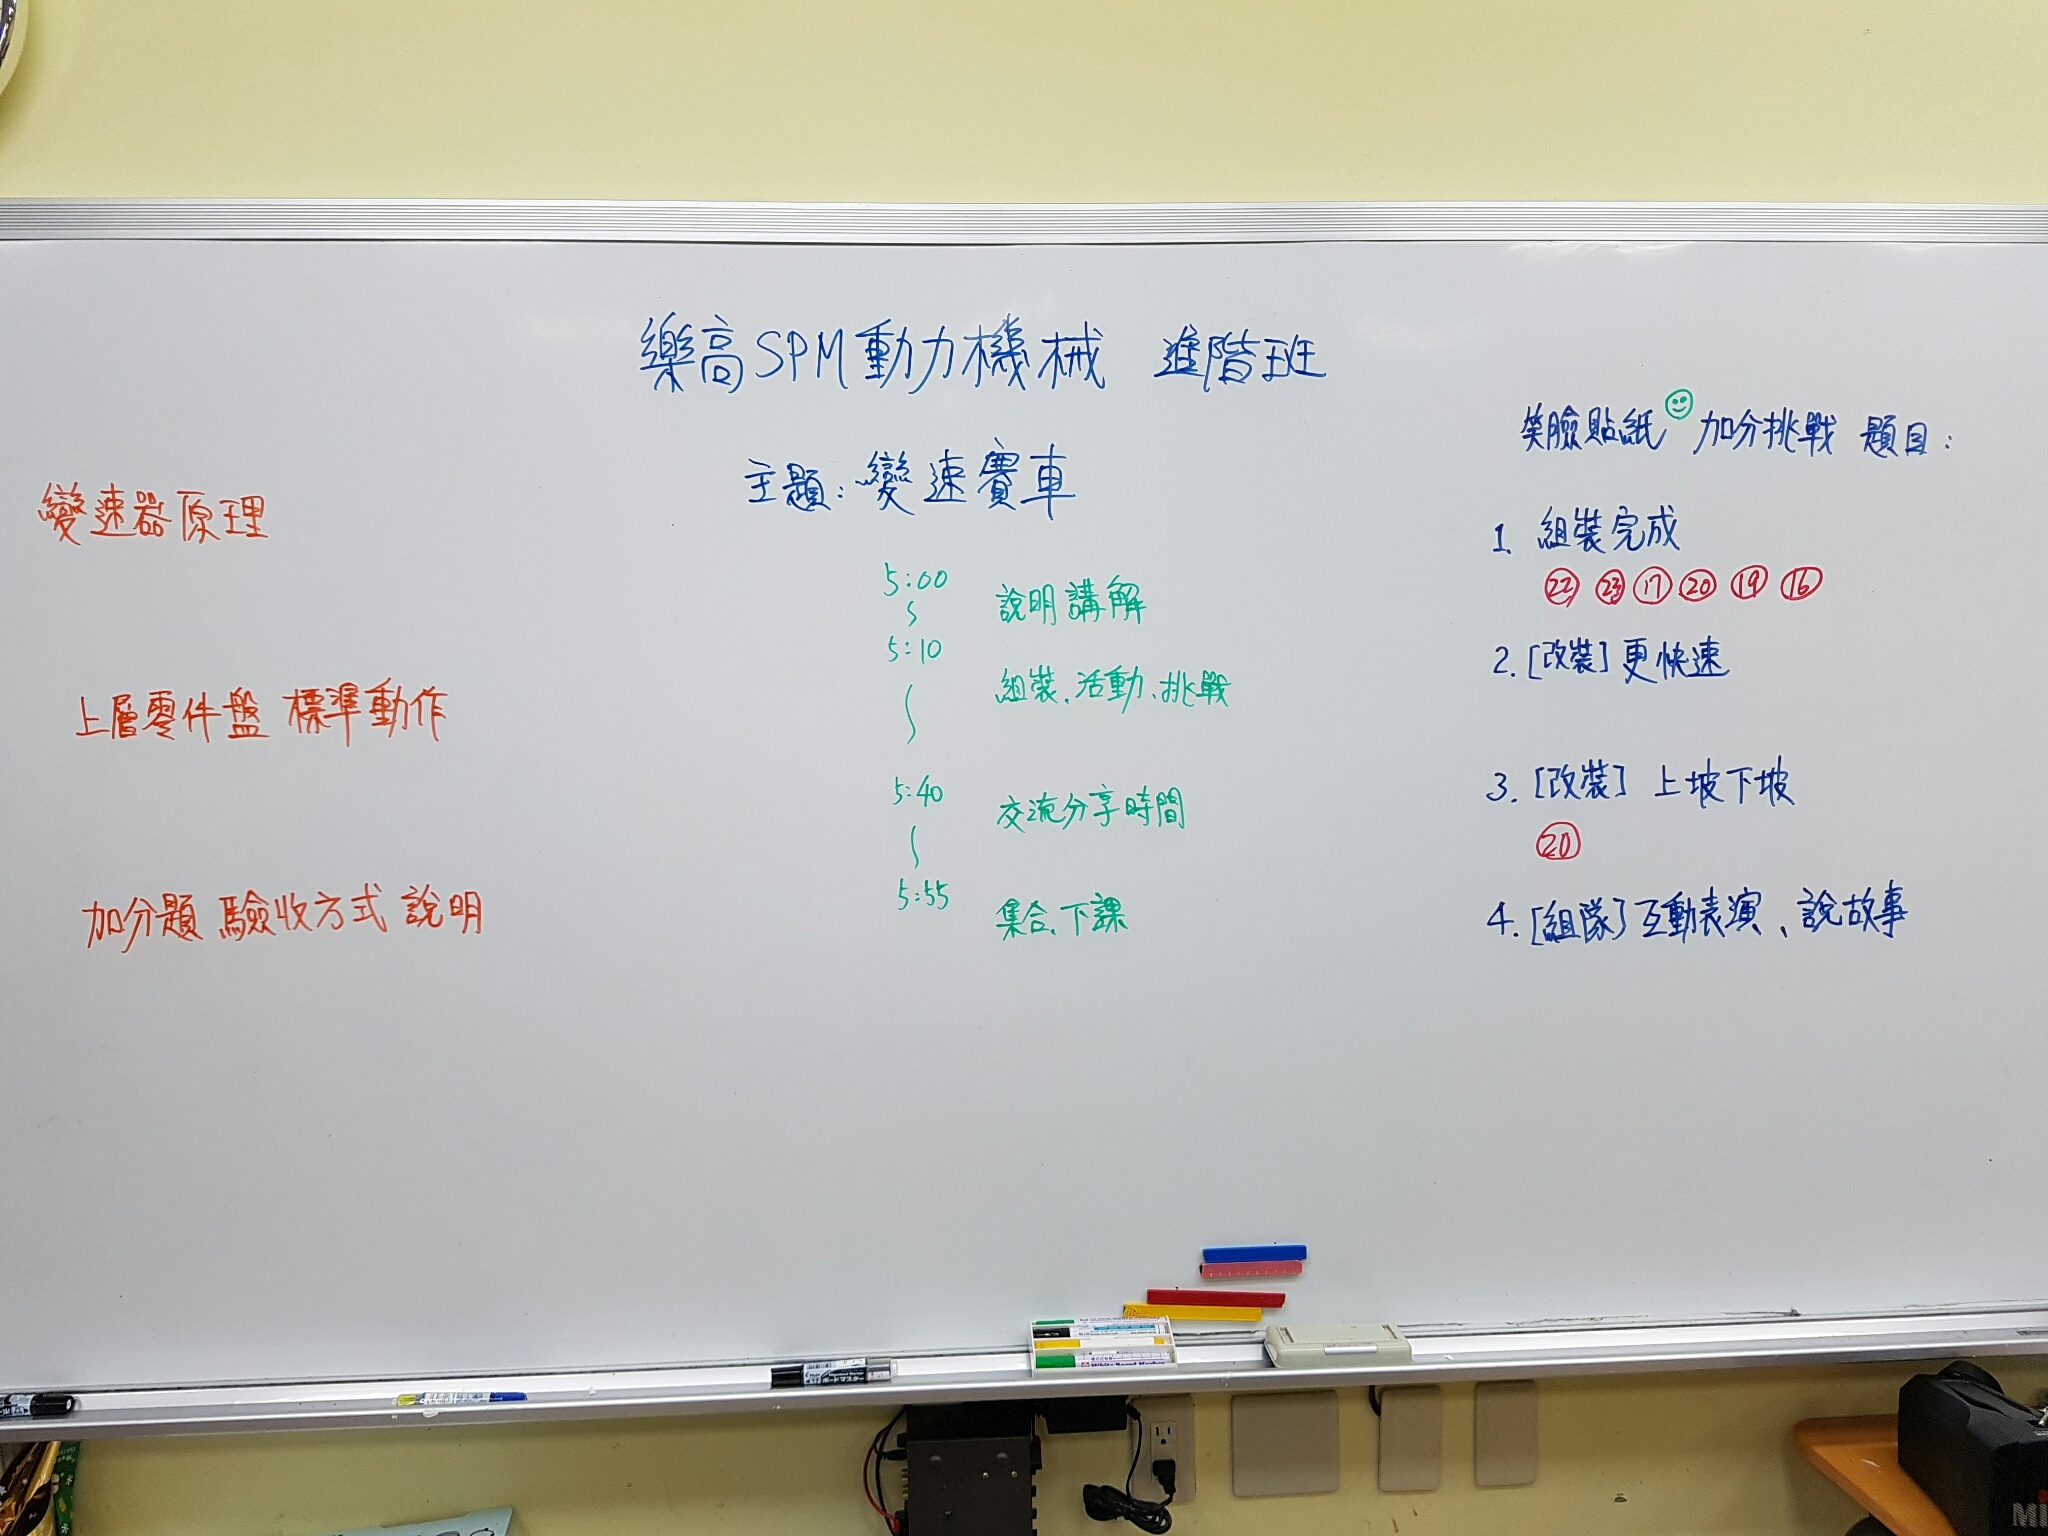 樂高SPM動力機械 進階班
主題:變速賽車
變速器原理
上層零件盤 標準動作
加分題 驗收方式 說明
5:00
說明講解
5:10
組裝、活動、挑戰
5:40
交流分享時間
5:55
集合、下課
笑臉貼紙 加分挑戰 題目:
1. 組裝完成
22 23 17 20 19 16
2. [改裝] 更快速
3. [改裝] 上坡下坡
20
4. [組隊] 互動表演、說故事